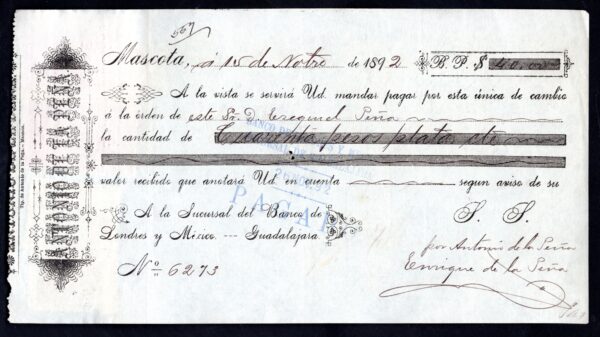 567
Mascota, á 15 de Nobre de 1892 B. P. $ 40.00
A la vista se servirá Ud. mandar pagar por esta única de cambio
á la órden de este Sr. D. Ezequiel Peña
la cantidad de Cuarenta pesos plata etc
valor recibido que anotará Ud en cuenta segun aviso de su
A la Sucursal del Banco de S. S.
Londres y México. --- Guadalajara.
por Antonio de la Peña
Enrique de la Peña
No 6273
ANTONIO DE LA PEÑA
Tip. de Antonio de la Peña.- Mascota.
PAGADO